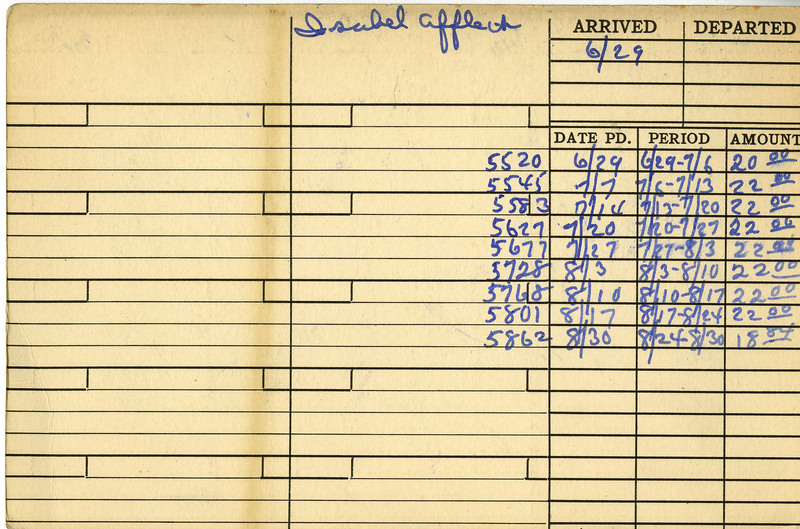 Isabel Affleck
ARRIVED DEPARTED
6/29
DATE PD. PERIOD AMOUNT
5520 6/29 6/29-7/6 20 00
5545 7/7 7/6-7/13 22 00
5583 7/14 7/13-7/20 22 00
5627 7/20 7/20-7/27 22 00
5677 7/27 7/27-8/3 22 00
5728 8/3 8/3-8/10 22 00
5768 8/10 8/10-8/17 22 00
5801 8/17 8/17-8/24 22 00
5862 8/30 8/24-8/30 18